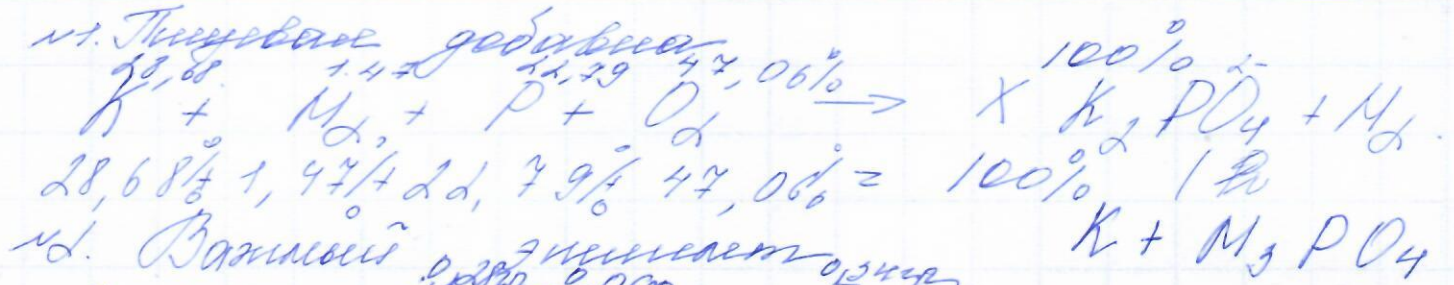 №1. Пищевая добавка
28,68 1.47 22,79 47,06% 100%
K + M2 + P + O2 → X K2PO4 + M2
28,68% + 1,47% + 22,79% + 47,06% = 100%
K + M3PO4
№2. Важный элемент